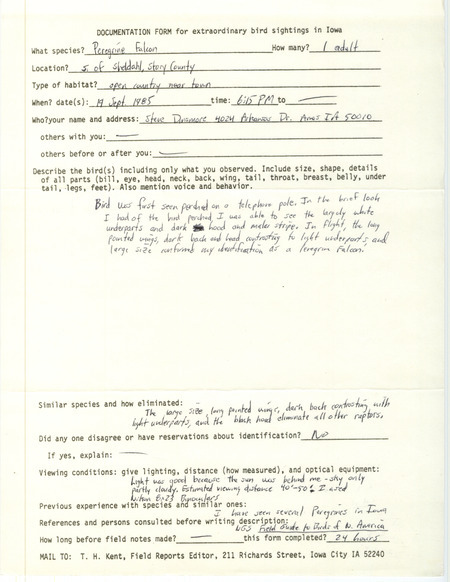 DOCUMENTATION FORM for extraordinary bird sightings in Iowa
What species? Peregrine Falcon How many? 1 adult
Location? S. of Sheldahl, Story County
Type of habitat? open country near town
When? date(s): 19 Sept. 1985 time: 6:15 PM to —
Who?your name and address: Steve Dinsmore 4024 Arkansas Dr. Ames IA 50010
others with you: —
others before or after you: —
Describe the bird(s) including only what you observed. Include size, shape, details
of all parts (bill, eye, head, neck, back, wing, tail, throat, breast, belly, under
tail, legs, feet). Also mention voice and behavior.
Bird was first seen perched on a telephone pole. In the brief look
I had of the bird perched, I was able to see the largely white
underparts and dark hood and malar stripe. In flight, the long
pointed wings, dark back and hood contrasting to light underparts, and
large size confirmed my identification as a Peregrine Falcon.
Similar species and how eliminated:
The large size, long pointed wings, dark back contrasting with
light underparts, and the black hood eliminate all other raptors.
Did any one disagree or have reservations about identification? No
If yes, explain: —
Viewing conditions: give lighting, distance (how measured), and optical equipment:
Light was good because the sun was behind me - sky only
partly cloudy. Estimated viewing distance 40'-50'. I used
Nikon 8x23 Binoculars
Previous experience with species and similar ones:
I have seen several Peregrines in Iowa
References and persons consulted before writing description:
NGS Field Guide to Birds of N. America
How long before field notes made? — this form completed? 24 hours
MAIL TO: T. H. Kent, Field Reports Editor, 211 Richards Street, Iowa City IA 52240